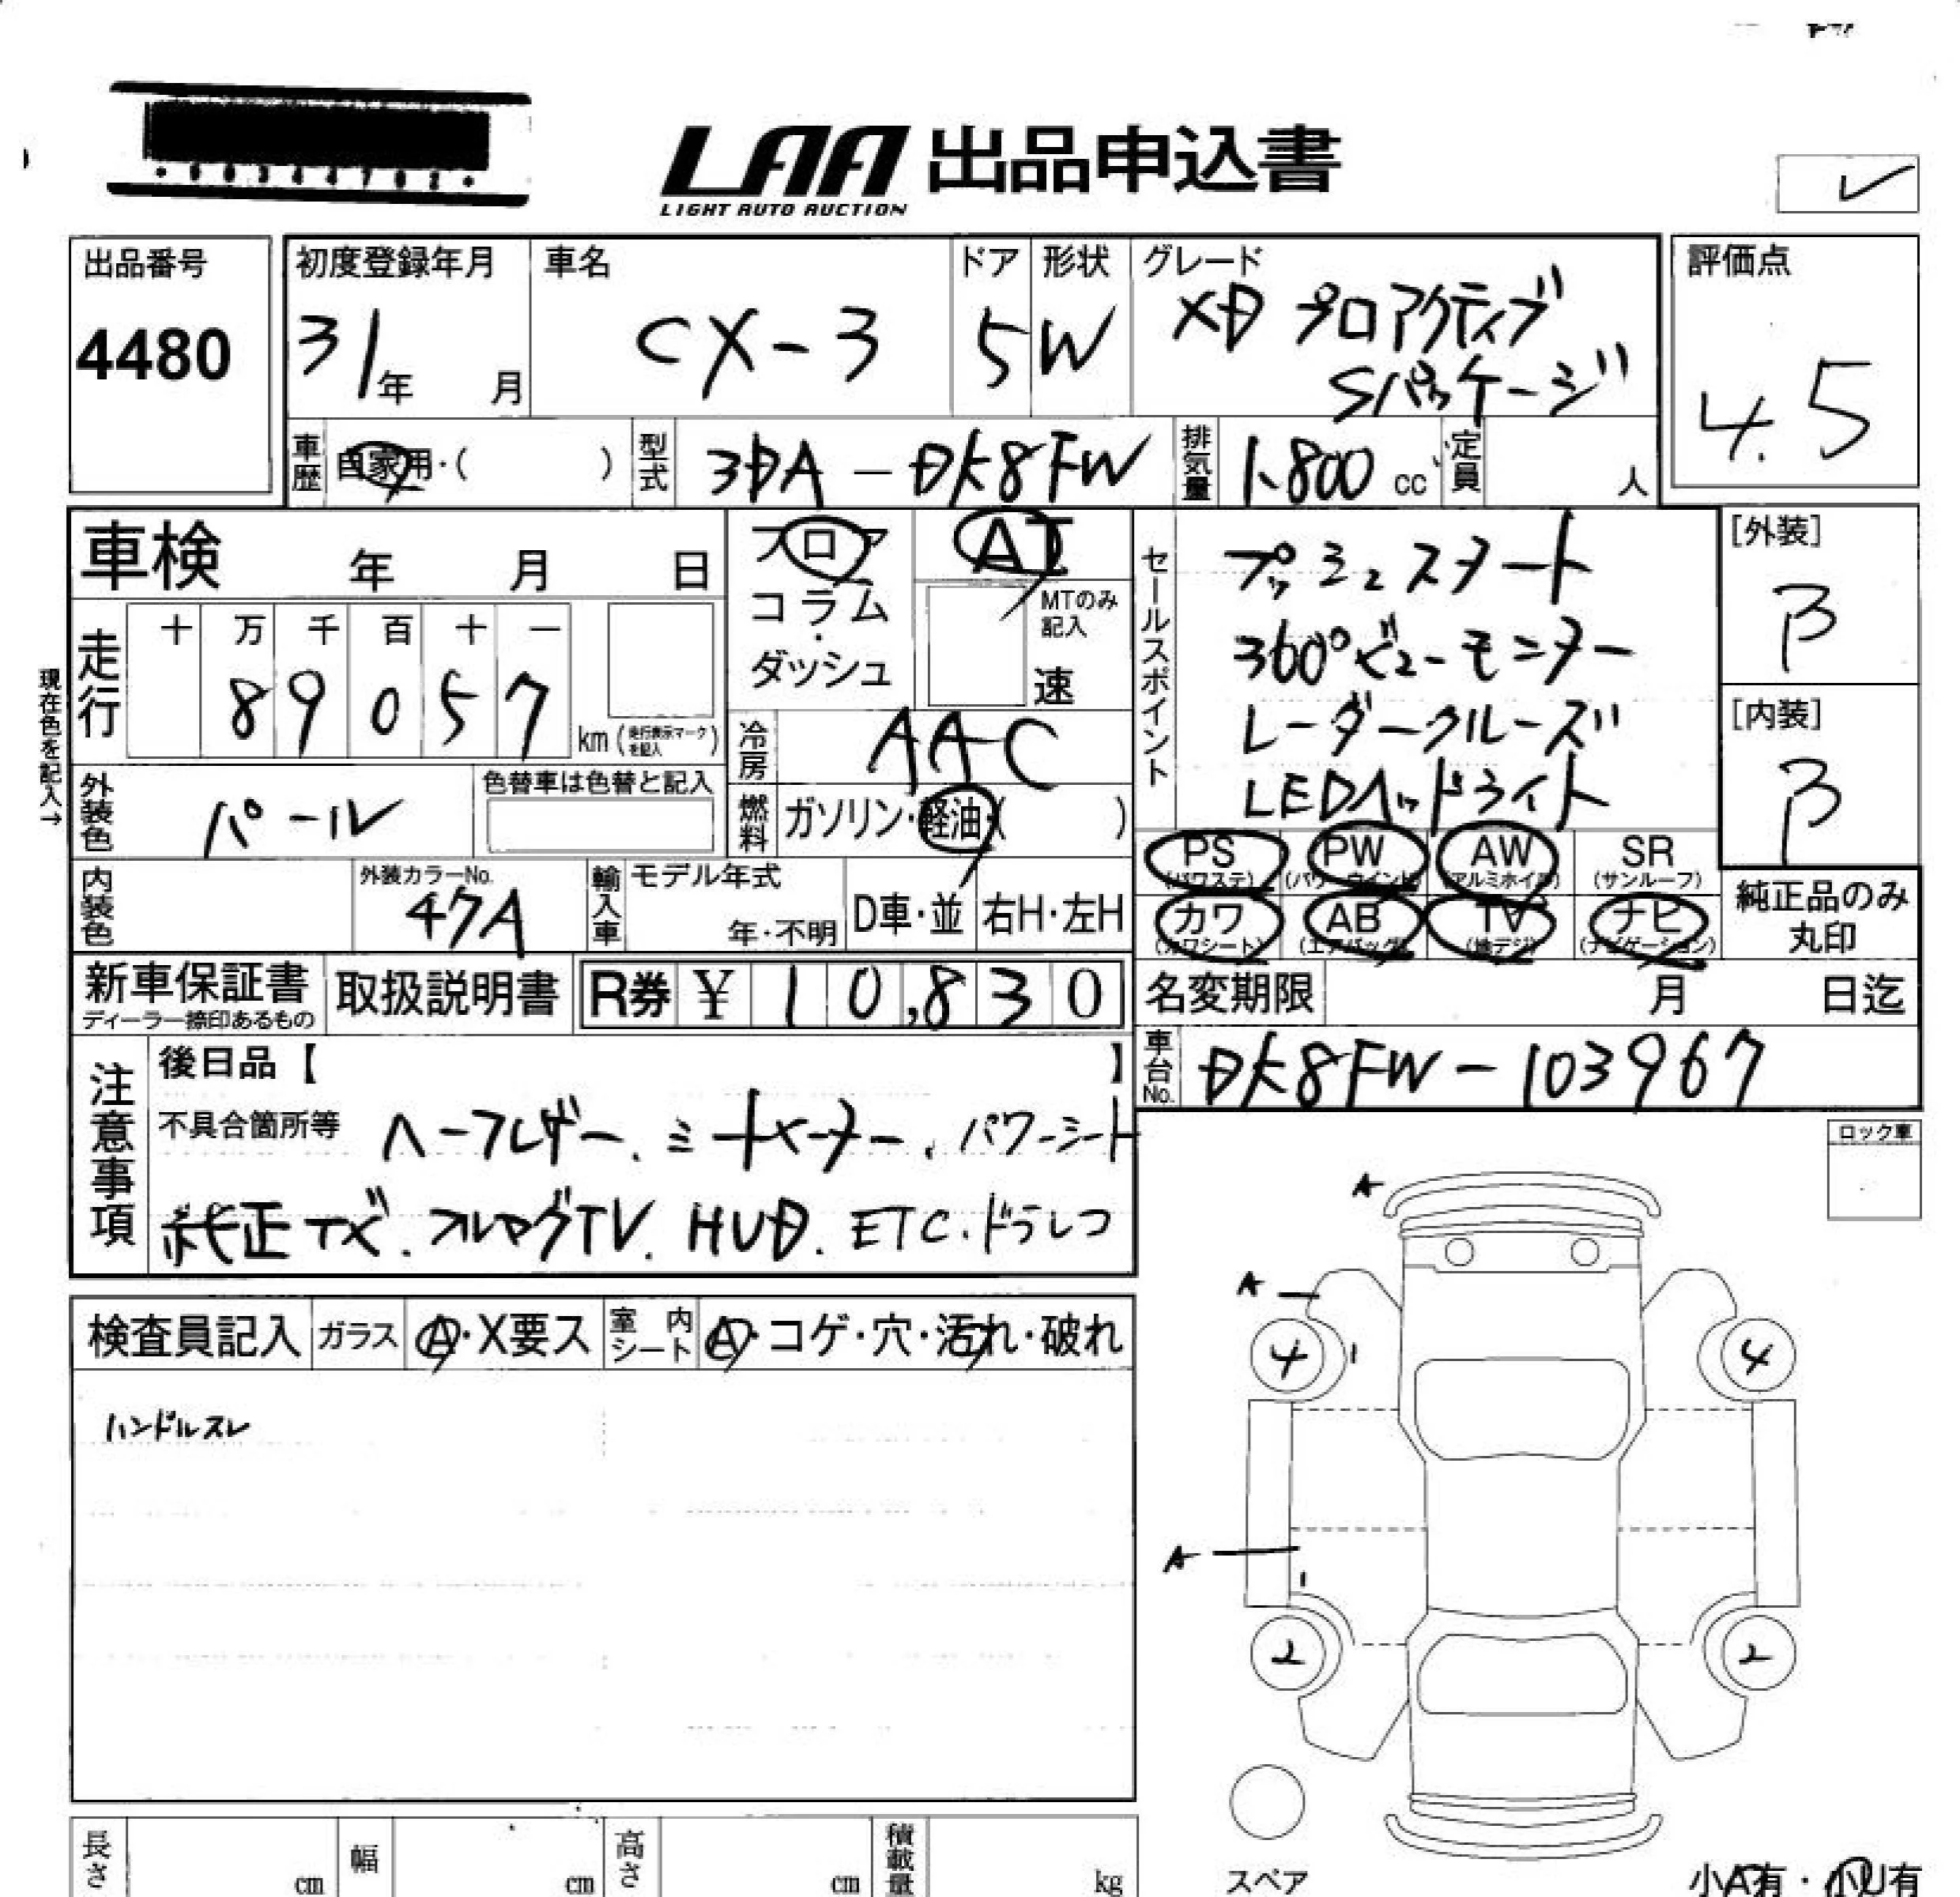 LAA 出品申込書
LIGHT AUTO AUCTION
出品番号
4480
初度登録年月
31年 月
車名
CX-3
ドア
5
形状
W
グレード
XD プロアクティブ
Sパッケージ
評価点
4.5
車歴 自家用・( )
型式 3DA-DK8FW
排気量 1,800 cc
定員 人
車検 年 月 日
フロア
コラム
・
ダッシュ
AT
MTのみ
記入
速
現在色を記入→
走行
十 万 千 百 十 一
8 9 0 5 7
km(走行表示マークを記入)
冷房 AAC
外装色 パール
色替車は色替と記入
燃料 ガソリン・軽油・( )
内装色
外装カラーNo.
47A
輸入車
モデル年式
年・不明
D車・並
右H・左H
セールスポイント
プッシュスタート
360°ビューモニター
レーダークルーズ
LEDヘッドライト
[外装]
B
[内装]
B
PS
(パワステ)
PW
(パワーウインド)
AW
(アルミホイル)
SR
(サンルーフ)
カワ
(カワシート)
AB
(エアバッグ)
TV
(地デジ)
ナビ
(ナビゲーション)
純正品のみ
丸印
新車保証書
ディーラー捺印あるもの
取扱説明書
R券 ¥ 10,830
名変期限 月 日迄
車台No. DK8FW-103967
注意事項
後日品【 】
不具合箇所等 ハーフレザー、ミートメーター、パワーシート
純正ナビ.フルセグTV.HUD.ETC.ドラレコ
ロック車
検査員記入
ガラス A・X要ス
室内シート A・コゲ・穴・汚れ・破れ
ハンドルスレ
A
A
4 1 4
A
1
2 2
スペア
小A有・小U有
長さ cm
幅 cm
高さ cm
積載量 kg